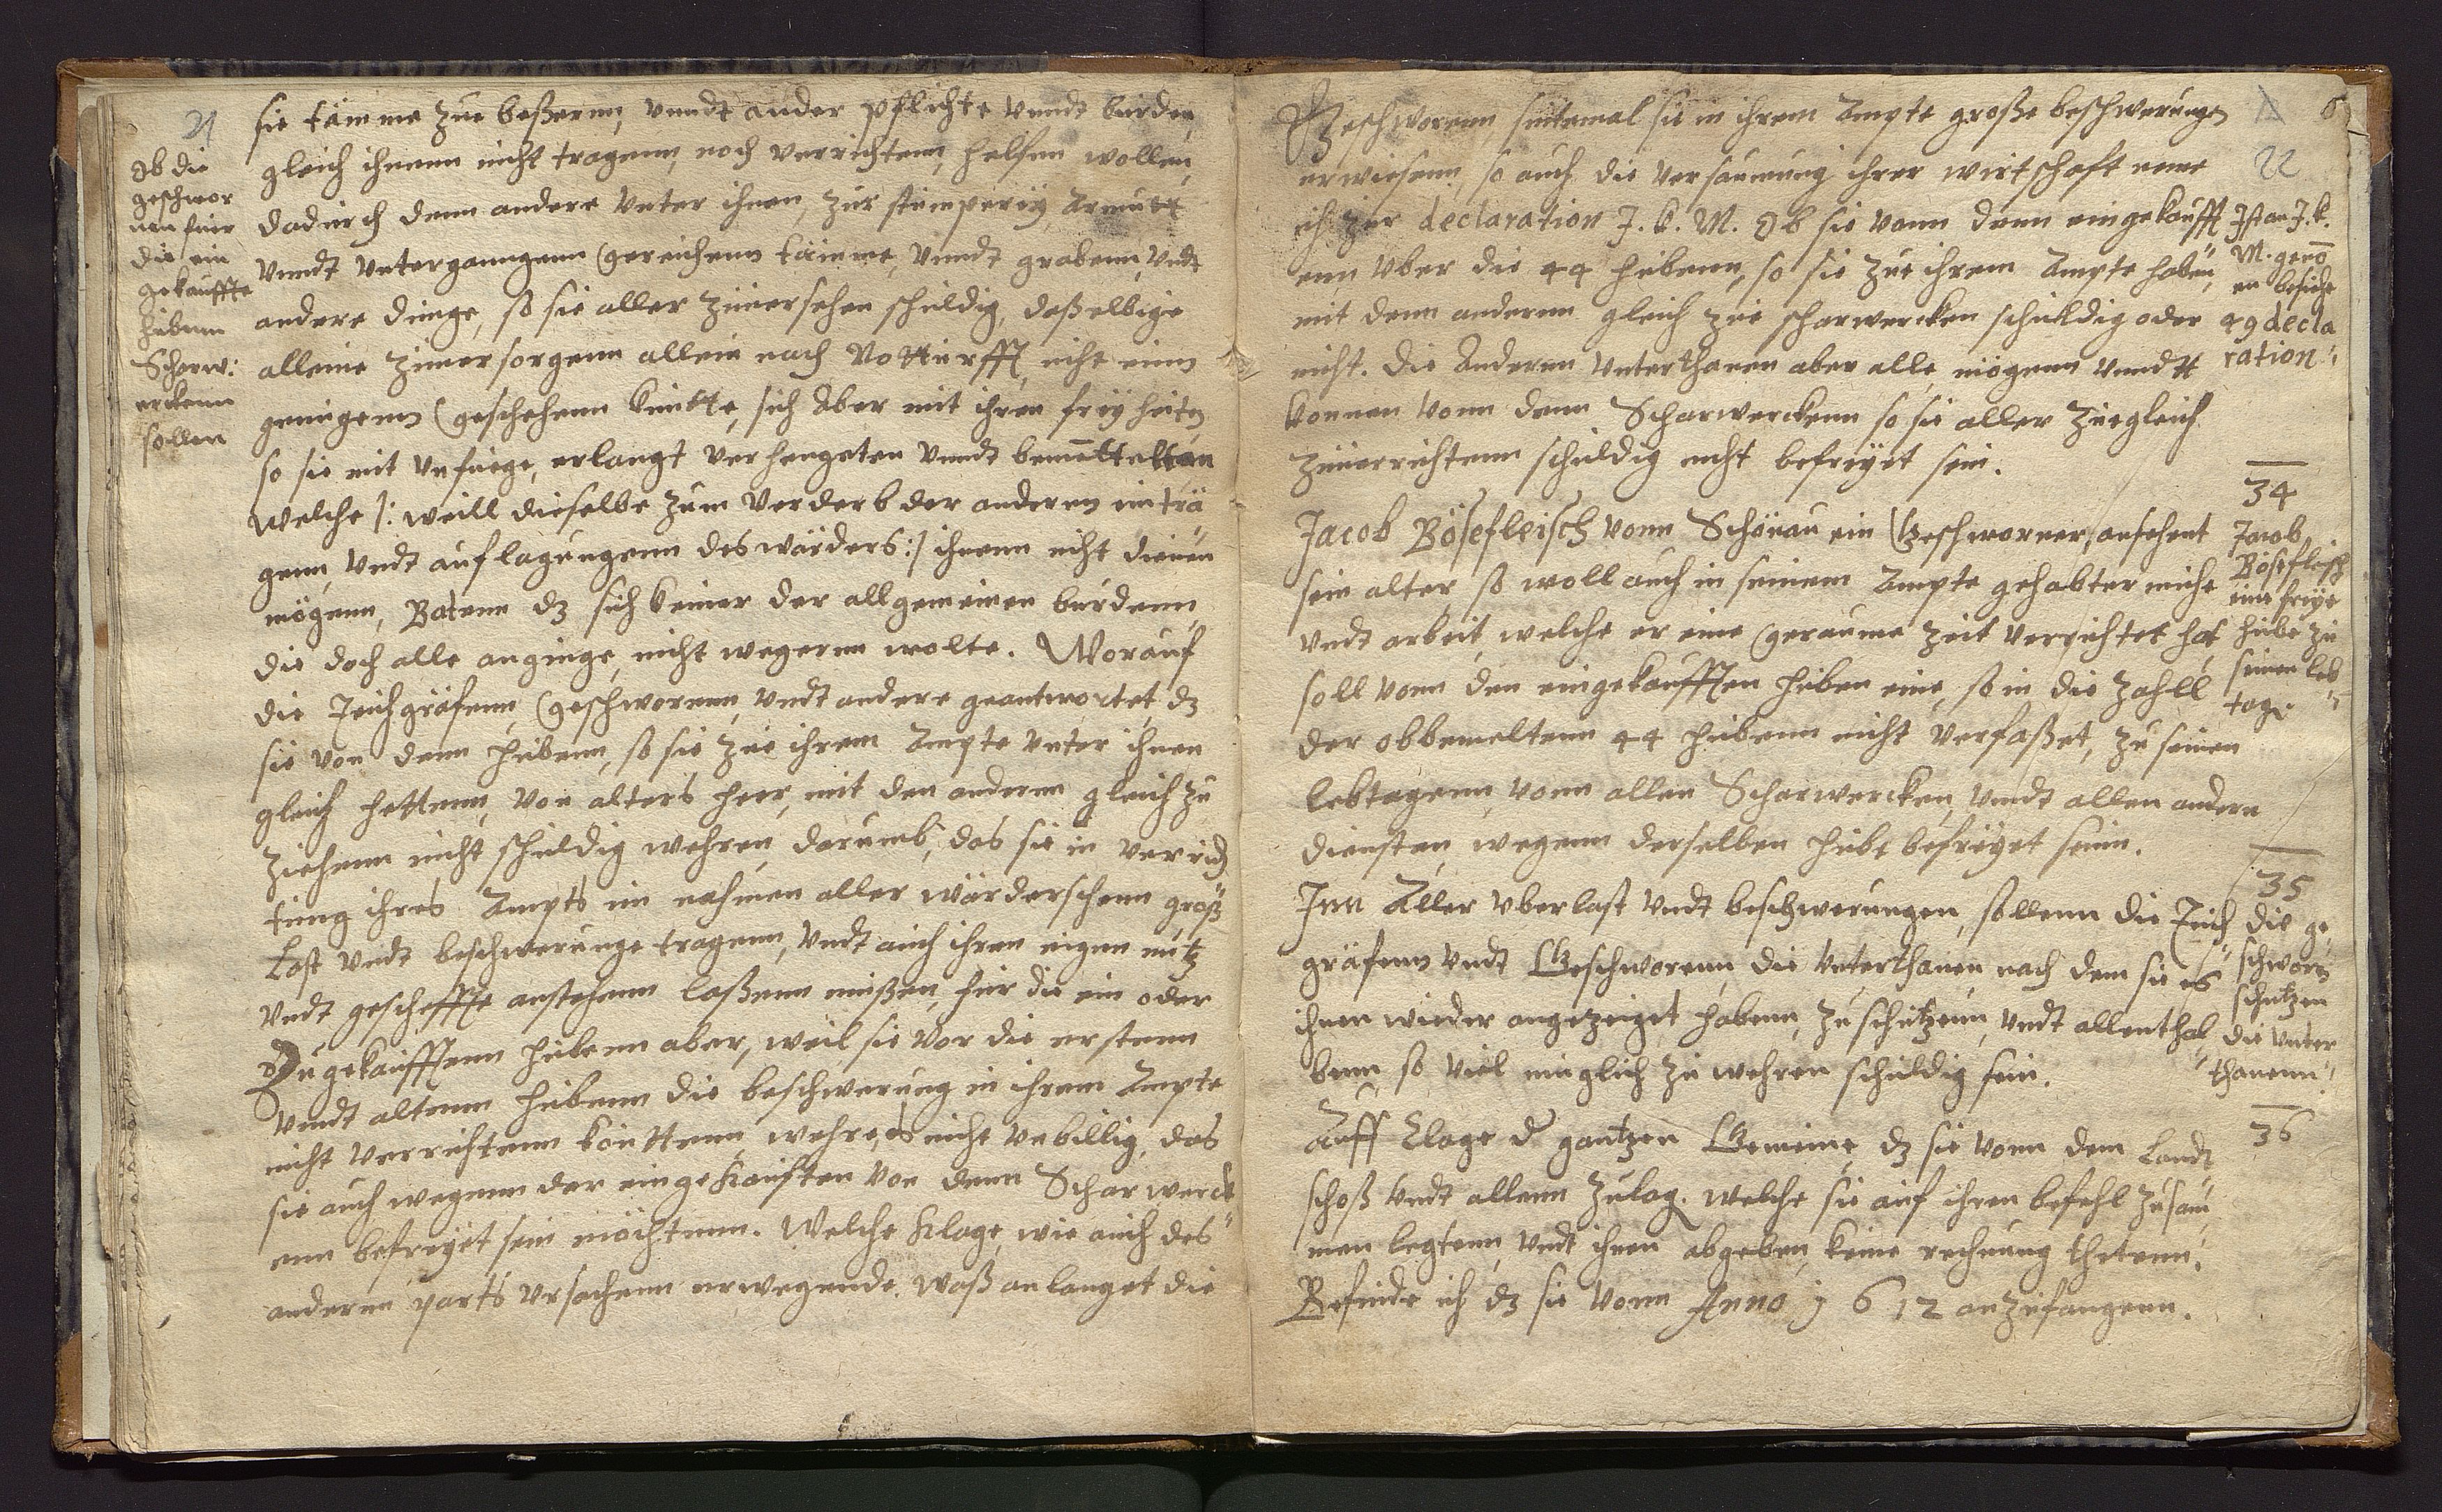 21
Ob die
geschwor
nen fuir
die ein
gekauffte
hubenn
Scharw:
erckenn
sollen
sie tämme zue beßerenn, vnndt ander pflichte vnndt burden,
gleich ihnenn nicht tragenn, noch verrichtenn, helfen wollen,
dadurch denn andere vnter ihnen, zur stümperey, Armutt
vnndt vnterganngenn gereichenn tämme, vnndt grabenn, vndt
andere dinge, so sie aller zuuersehen schuldig, daßelbige
alleine zuuersorgenn allein nach Notturfft nicht einn
genugenn geschehenn kuntte, sich Aber mit ihren freyheiten
so sie mit vnfuege, erlangt verhengeten vnndt
welche /: weill dieselbe zum verderb der anderen einträ
genn, vndt auflagungenn des wärders :/ ihnenn nicht dienen
mögenn, Batenn dz sich keiner der allgemeinen burdenn,
die doch alle anginge, nicht wegerenn wolte. Worauf
die Teichgräfenn, geschworenn, vndt andere geantwortet, dz
sie von denn hubenn, so sie zue ihrem Ampte vnter ihnen
gleich hettenn, von alters heer, mit den anderen gleich zu
ziehenn nicht schuldig wehren, darumb, das sie in verrich
tung ihres Ampts im nahmen aller wärderschenn groß
Last vndt beschwerunge tragenn, vndt auch ihren eigen nutz
vndt gescheffte anstehenn laßenn mußen, fur die ein oder
Zugekaufftenn hubenn aber, weil sie vor die erstenn
vnndt altenn hubenn die beschwerung in ihrem Ampte
nicht verrichtenn könttenn, wehre es nicht vnbillig, das
sie auch wegenn der eingekauften von denn Scharwerck
enn befreyet sein möchtenn. Welche Klage, wie auch des
anderen parts vrsachenn erwegende. Waß anlanget die
8
22
Geschworenn, sintemal sie in ihrem Ampte große beschwerungen
erwiesenn, so auch die versäumung ihrer wirtschaft neme
ich zur declaration J. k. M. Ob sie vonn denn eingekaufft
enn vber die 44 hubenn, so sie zue ihrem Ampte haben,
mit denn anderen gleich zue scharwercken schuldig oder
nicht. Die Anderen vnterthanen aber alle, mögenn vnndtt
konnen vonn denn Scharwerckenn so sie aller zuegleich
zuuerrichtenn schuldig nicht befreyet sein.
Ist an J. k.
M. genō
en
49 decla
ration
34
Jacob Bösefleisch vonn Schönau ein Geschworner, ansehent
sein alter, so woll auch in seinem Ampte gehabter muehe
vndt arbeit, welche er eine geraume zeit verrichtet hat,
soll vonn den eingekaufften huben eine, so in die zahll
der obbemeltenn 44 hubenn nicht verfaßet, zu seinen
lebtagenn, vonn allen Scharwercken, vndt allen andern
diensten, wegenn derselben hube befreyet seinn.
Jacob
Bösefleisch
eine freye
hube zu
seinen leb
tage
35
Inn Aller vberlast vndt beschwerungen, sollenn die Teich
gräfenn vndt Geschworenn, die vnterthanen, nach dem sie es
ihnen wieder angezeiget habenn, zu schutzenn, vndt allenthal
benn, so viel muglich zu wehren schuldig sein.
die ge
schworn
schutzen
die vnter
thanenn
36
Auff Clage d gantzen Gemeine, dz sie vonn dem Landt
schoß vndt allenn zulag, welche sie auf ihren befehl zusam
men legtenn, vndt ihnen abgeben, keine rechnung thetenn,
Befinde ich dz sie vonn Anno 1612 anzufangenn.